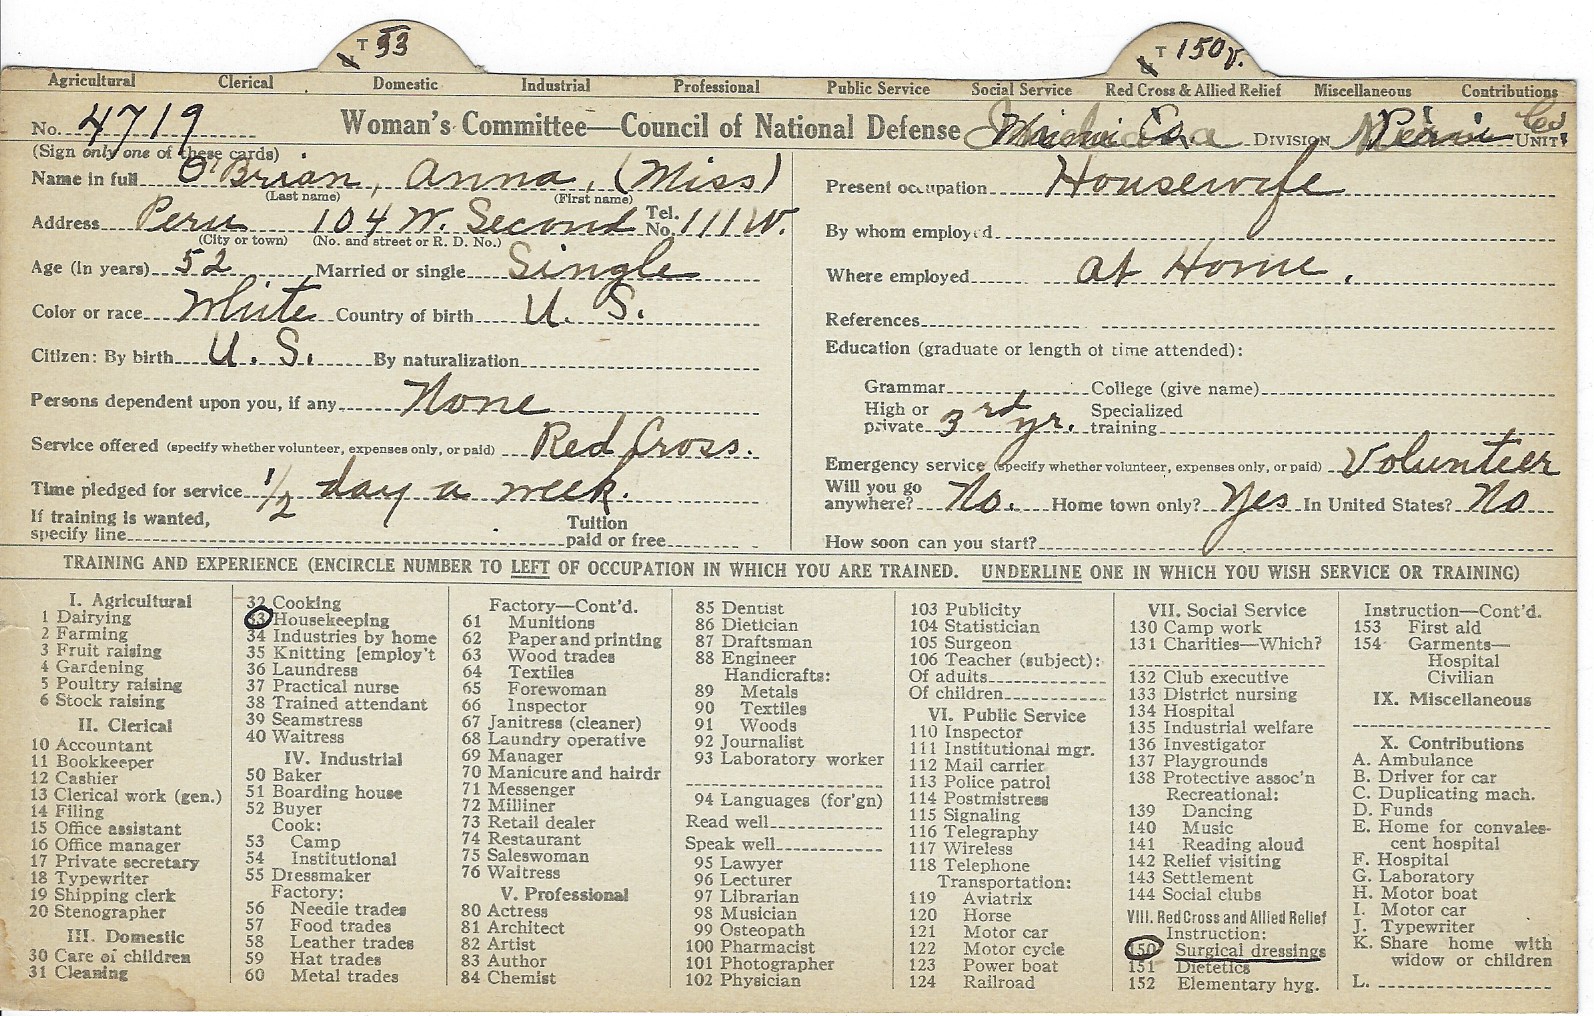 T 33
T 150 V.
Agricultural Clerical Domestic Industrial Professional Public Service Social Service Red Cross & Allied Relief Miscellaneous Contributions
No. 4719 Woman's Committee—Council of National Defense Miami Co. DIVISION Peru UNIT
(Sign only one of these cards)
Name in full O'Brian, Anna, (Miss)
(Last name) (First name)
Address Peru 104 W. Second Tel. No. 111 W.
(City or town) (No. and street or R. D. No.)
Age (in years) 52 Married or single Single
Color or race White Country of birth U. S.
Citizen: By birth U. S. By naturalization
Persons dependent upon you, if any None
Service offered (specify whether volunteer, expenses only, or paid) Red Cross.
Time pledged for service 1/2 day a week.
If training is wanted, specify line Tuition paid or free
Present occupation Housewife
By whom employed
Where employed at Home.
References
Education (graduate or length of time attended):
Grammar College (give name)
High or private 3rd yr. Specialized training
Emergency service (specify whether volunteer, expenses only, or paid) Volunteer
Will you go anywhere? No. Home town only? Yes In United States? No
How soon can you start?
TRAINING AND EXPERIENCE (ENCIRCLE NUMBER TO LEFT OF OCCUPATION IN WHICH YOU ARE TRAINED. UNDERLINE ONE IN WHICH YOU WISH SERVICE OR TRAINING)
I. Agricultural
1 Dairying
2 Farming
3 Fruit raising
4 Gardening
5 Poultry raising
6 Stock raising
II. Clerical
10 Accountant
11 Bookkeeper
12 Cashier
13 Clerical work (gen.)
14 Filing
15 Office assistant
16 Office manager
17 Private secretary
18 Typewriter
19 Shipping clerk
20 Stenographer
III. Domestic
30 Care of children
31 Cleaning
32 Cooking
33 Housekeeping
34 Industries by home
35 Knitting [employ't
36 Laundress
37 Practical nurse
38 Trained attendant
39 Seamstress
40 Waitress
IV. Industrial
50 Baker
51 Boarding house
52 Buyer
Cook:
53 Camp
54 Institutional
55 Dressmaker
Factory:
56 Needle trades
57 Food trades
58 Leather trades
59 Hat trades
60 Metal trades
Factory—Cont'd.
61 Munitions
62 Paper and printing
63 Wood trades
64 Textiles
65 Forewoman
66 Inspector
67 Janitress (cleaner)
68 Laundry operative
69 Manager
70 Manicure and hairdr
71 Messenger
72 Milliner
73 Retail dealer
74 Restaurant
75 Saleswoman
76 Waitress
V. Professional
80 Actress
81 Architect
82 Artist
83 Author
84 Chemist
85 Dentist
86 Dietician
87 Draftsman
88 Engineer
Handicrafts:
89 Metals
90 Textiles
91 Woods
92 Journalist
93 Laboratory worker
94 Languages (for'gn)
Read well
Speak well
95 Lawyer
96 Lecturer
97 Librarian
98 Musician
99 Osteopath
100 Pharmacist
101 Photographer
102 Physician
103 Publicity
104 Statistician
105 Surgeon
106 Teacher (subject):
Of adults
Of children
VI. Public Service
110 Inspector
111 Institutional mgr.
112 Mail carrier
113 Police patrol
114 Postmistress
115 Signaling
116 Telegraphy
117 Wireless
118 Telephone
Transportation:
119 Aviatrix
120 Horse
121 Motor car
122 Motor cycle
123 Power boat
124 Railroad
VII. Social Service
130 Camp work
131 Charities—Which?
132 Club executive
133 District nursing
134 Hospital
135 Industrial welfare
136 Investigator
137 Playgrounds
138 Protective assoc'n
Recreational:
139 Dancing
140 Music
141 Reading aloud
142 Relief visiting
143 Settlement
144 Social clubs
VIII. Red Cross and Allied Relief
Instruction:
150 Surgical dressings
151 Dietetics
152 Elementary hyg.
Instruction—Cont'd.
153 First aid
154 Garments—
Hospital
Civilian
IX. Miscellaneous
X. Contributions
A. Ambulance
B. Driver for car
C. Duplicating mach.
D. Funds
E. Home for convales-
cent hospital
F. Hospital
G. Laboratory
H. Motor boat
I. Motor car
J. Typewriter
K. Share home with
widow or children
L.